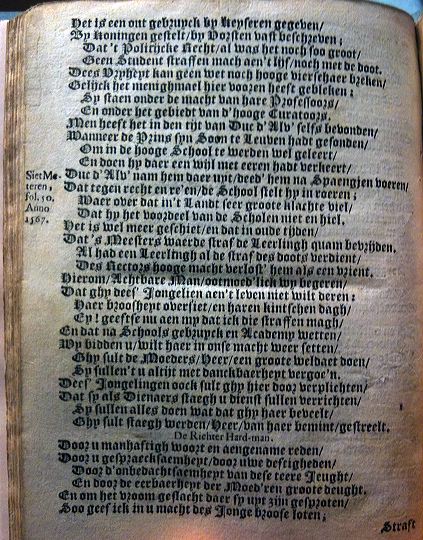 Het is een out gebruyck by Keyseren gegeven/
By Koningen gestelt/by Vorsten vast beschreven;
Dat 't Politijcke Recht/al was het noch soo groot/
Geen Student straffen mach aen't lijf/noch met de doot.
Dees Vryheyt kan geen wet noch hooge vierschaer breken/
Gelijck het menighmael hier vooren heeft gebleken:
Sy staen onder de macht van hare Professoors/
En onder het gebiedt van d'hooge Curatoors.
Men heeft het in den tijt van Duc d'Alv' selfs bevonden/
Wanneer de Prins syn Soon te Leuven hadt gesonden/
Om in de hooge School te werden wel geleert/
En doen hy daer een wijl met eeren hadt verkeert/
Siet Me-
teren,
fol. 50.
Anno
1567.
Duc d'Alv' nam hem daer uyt/deed' hem na Spaengjen voeren/
Dat tegen recht en re'en/de School stelt hy in roeren;
Waer over dat in't Landt seer groote klachte viel/
Dat hy het voordeel van de Scholen niet en hiel.
Het is wel meer geschiet/en dat in oude tijden/
Dat 's Meesters waerde straf de Leerlingh quam bevrijden.
Al had een Leerlingh al de straf des doots verdient/
Des Rectors hooge macht verlost' hem als een vrient.
Hierom/Achtbare Man/ootmoed'lick wy begeren/
Dat ghy dees' Jongelien aen't leven niet wilt deren:
Haer broosheyt oversiet/en haren kintschen dagh/
Ey! geeftse nu aen my dat ick die straffen magh/
En dat na Schools gebruyck en Academy wetten/
Wy bidden u/wilt haer in onse macht weer setten/
Ghy sult de Moeders/Heer/een groote weldaet doen/
Sy sullen't u altijt met danckbaerheyt vergoe'n.
Dees' Jongelingen oock sult ghy hier door verplichten/
Dat sy als Dienaers staegh u dienst sullen verrichten/
Sy sullen alles doen wat dat ghy haer beveelt/
Ghy sult staegh werden/Heer/van haer bemint/gestreelt.
De Richter Hard-man.
Door u manhaftigh woort en aengename reden/
Door u gespraecksaemheyt/door uwe deftigheden/
Door d'onbedachtsaemheyt van dese teere Jeught/
En door de eerbaerheyt der Moed'ren groote deught.
En om het vroom geslacht daer sy uyt zijn gesproten/
Soo geef ick in u macht des Jonge broose loten;
Straft